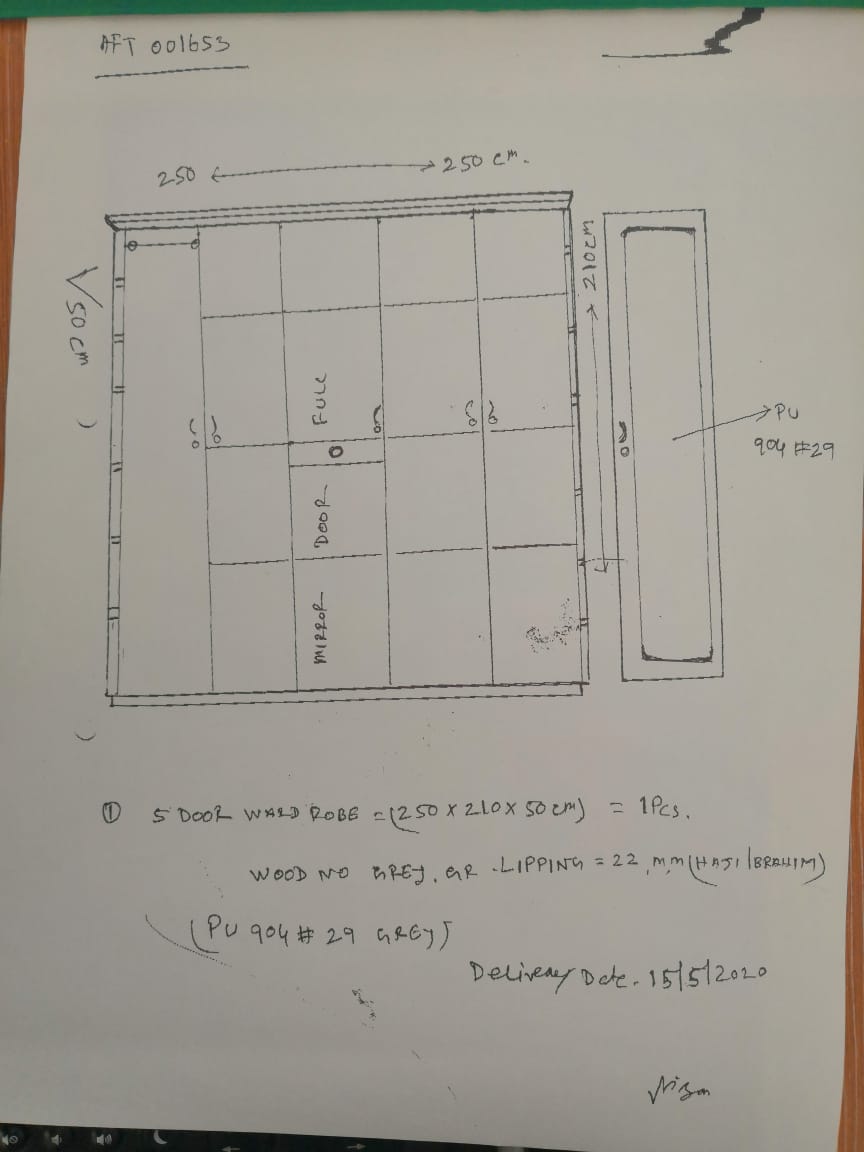 AFT 001653
250 250 cm.
210cm
50 cm
FULL
DOOR
MIRROR
PU
904 #29
① 5 DOOR WARD ROBE = (250 X 210 X 50 cm) = 1Pcs.
WOOD NO GREY. GR .LIPPING = 22 m.m (HAJI IBRAHIM)
(PU 904 # 29 GREY)
Delivery Date. 15/5/2020